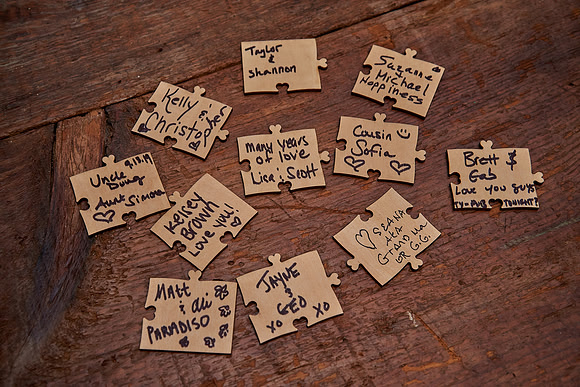 Taylor
&
Shannon
Suzanne
Michael
Happiness
Kelly &
Christopher
Many years
of love
Lisa & Scott
Cousin
Sofia
Brett &
Gab
Love you guys
TONIGHT?
9.13.19
Uncle
Doug
Aunt Simone
Kelsey
Brown
Love you!
SEANA
AKA
GRANDMA
OR G.G.
Matt
& Ali
PARADISO
JAYNE
&
GEO
XO XO